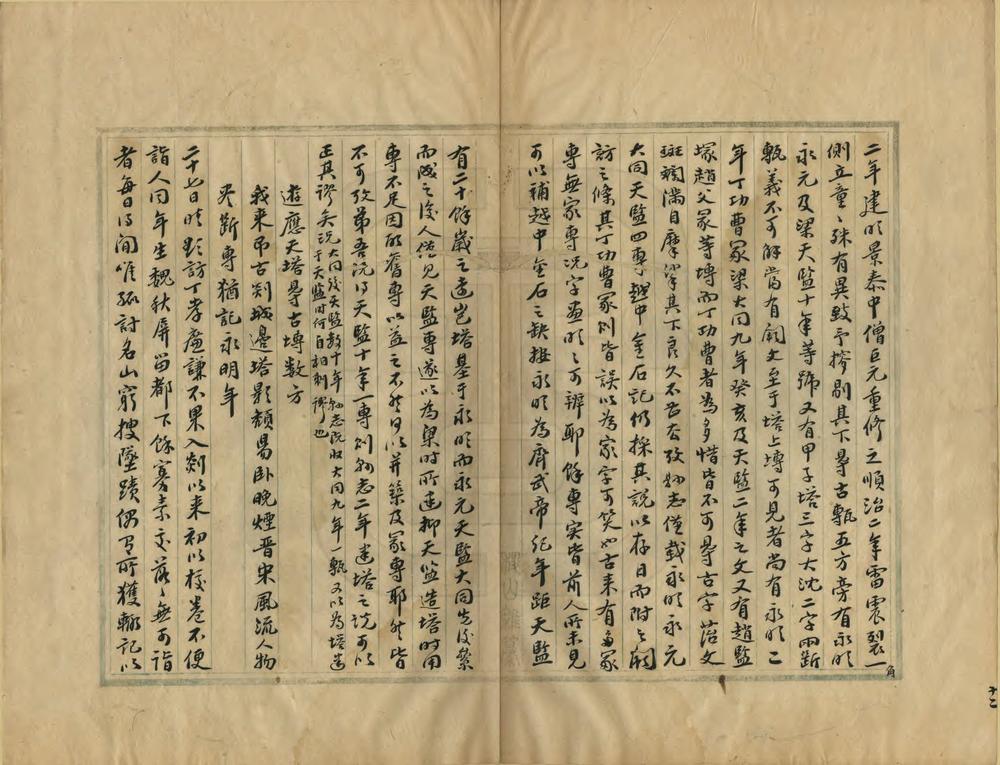 二年建明景泰中僧巨元重修之順治二年雷震裂一角
側立童童殊有異致予搒剔其下尋古甎五方旁有永明
永元及梁天監十年等號又有甲子塔三字大沈二字兩斷
甎義不可解當有闕文至于塔上塼可見者尚有永明二
年丁功曹冢梁大同九年癸亥及天監二年之文又有趙監
塚趙父冢等塼而丁功曹者為多惜皆不可尋古字苔文
斑斕滿目摩挲其下良久不去攷縣志僅載永明永元
大同天監四專越中金石記仍採其說以存目而附之闕
訪之條其丁功曹冢則皆誤以為家字可笑如古来有為冢
專無家專况字畫明明可辨耶餘專实皆前人所未見
可以補越中金石之缺據永明為齊武帝紀年距天監
有二十餘歲之遠豈塔基于永明而永元天監大同先後繁
而成之後人僅見天監專遂以為梁時所建抑天監造塔時用
專不足因取舊專以益之不然何以并築及冢專耶然皆
不可攷第吾說得天監十年一專則縣志二年建塔之說可以
正其謬矣况大同後天監數十年縣志既收大同九年一甎又以為塔建
于天監時何自相刺謬也
遊應天塔尋古塼数方
我来弔古剡城邊塔影頹昜卧晚煙晋宋風流人物
尽斷專猶記永明年
二十七日晴彭訪丁孝廉謙不果入剡以来初以校卷不便
詣人同年生魏秋屏留都下餘寡素交落落無可詣
者每日得閒唯孤討名山窮搜墜蹟偶有所獲輒記以
十二